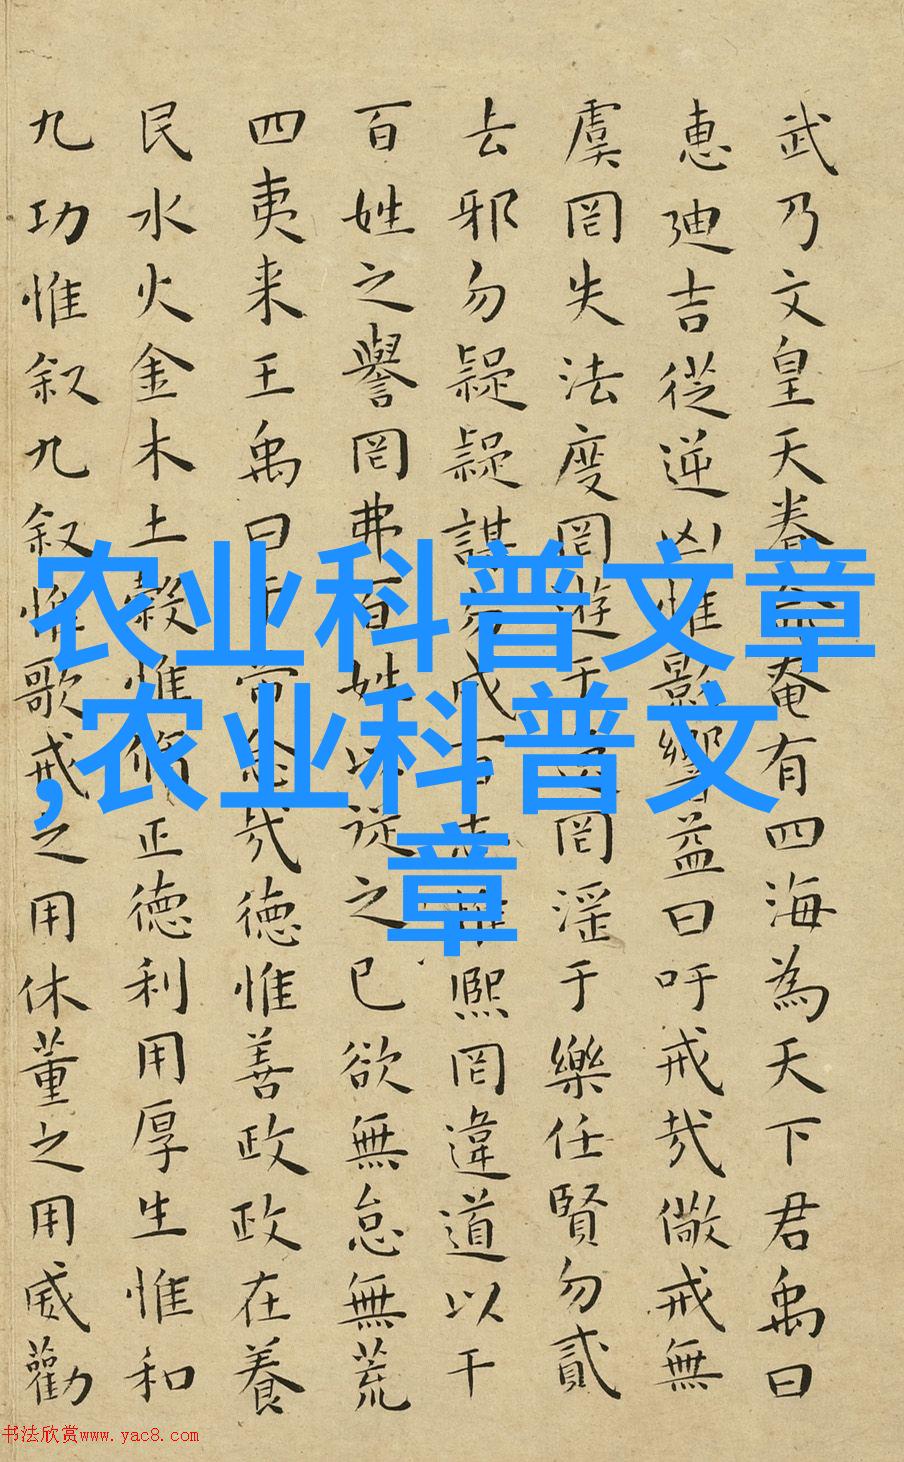 武乃文皇天眷命奄有四海為天下君禹曰
惠迪吉從逆凶惟影響益曰吁戒哉儆戒無
虞罔失法度罔遊于逸罔淫于樂任賢勿貳
去邪勿疑疑謀勿成百志惟熙罔違道以干
百姓之譽罔弗百姓以従之已欲無怠無荒
四夷来王禹曰帝念哉德惟善政政在養
民水火金木土穀惟修正德利用厚生惟和
九功惟叙九叙惟歌戒之用休董之用威勸
农业科普文章
,农业科普文
章
书法欣赏www.yac8.com